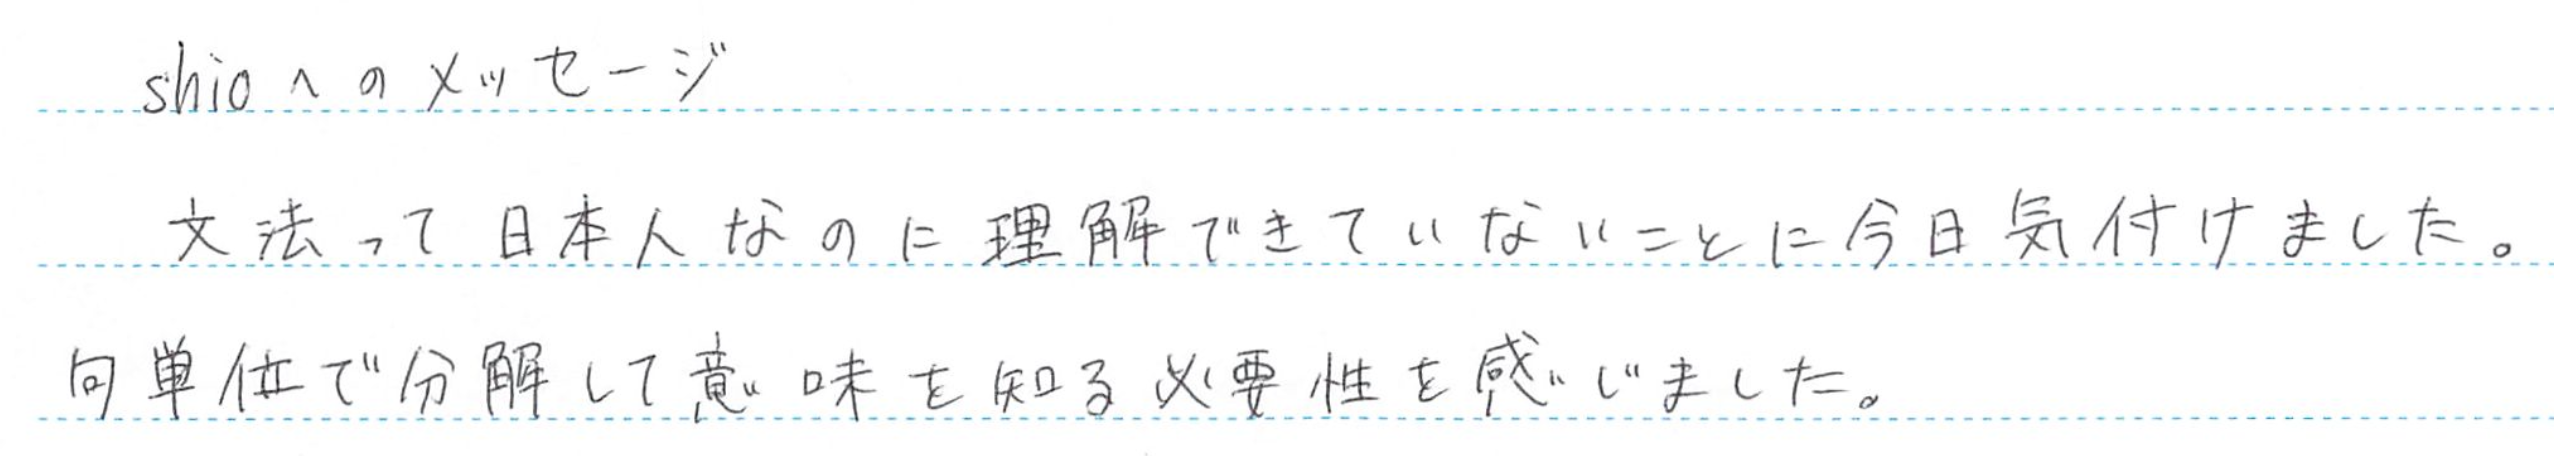 shioへのメッセージ
文法って日本人なのに理解できていないことに今日気付けました。
句単位で分解して意味を知る必要性を感じました。